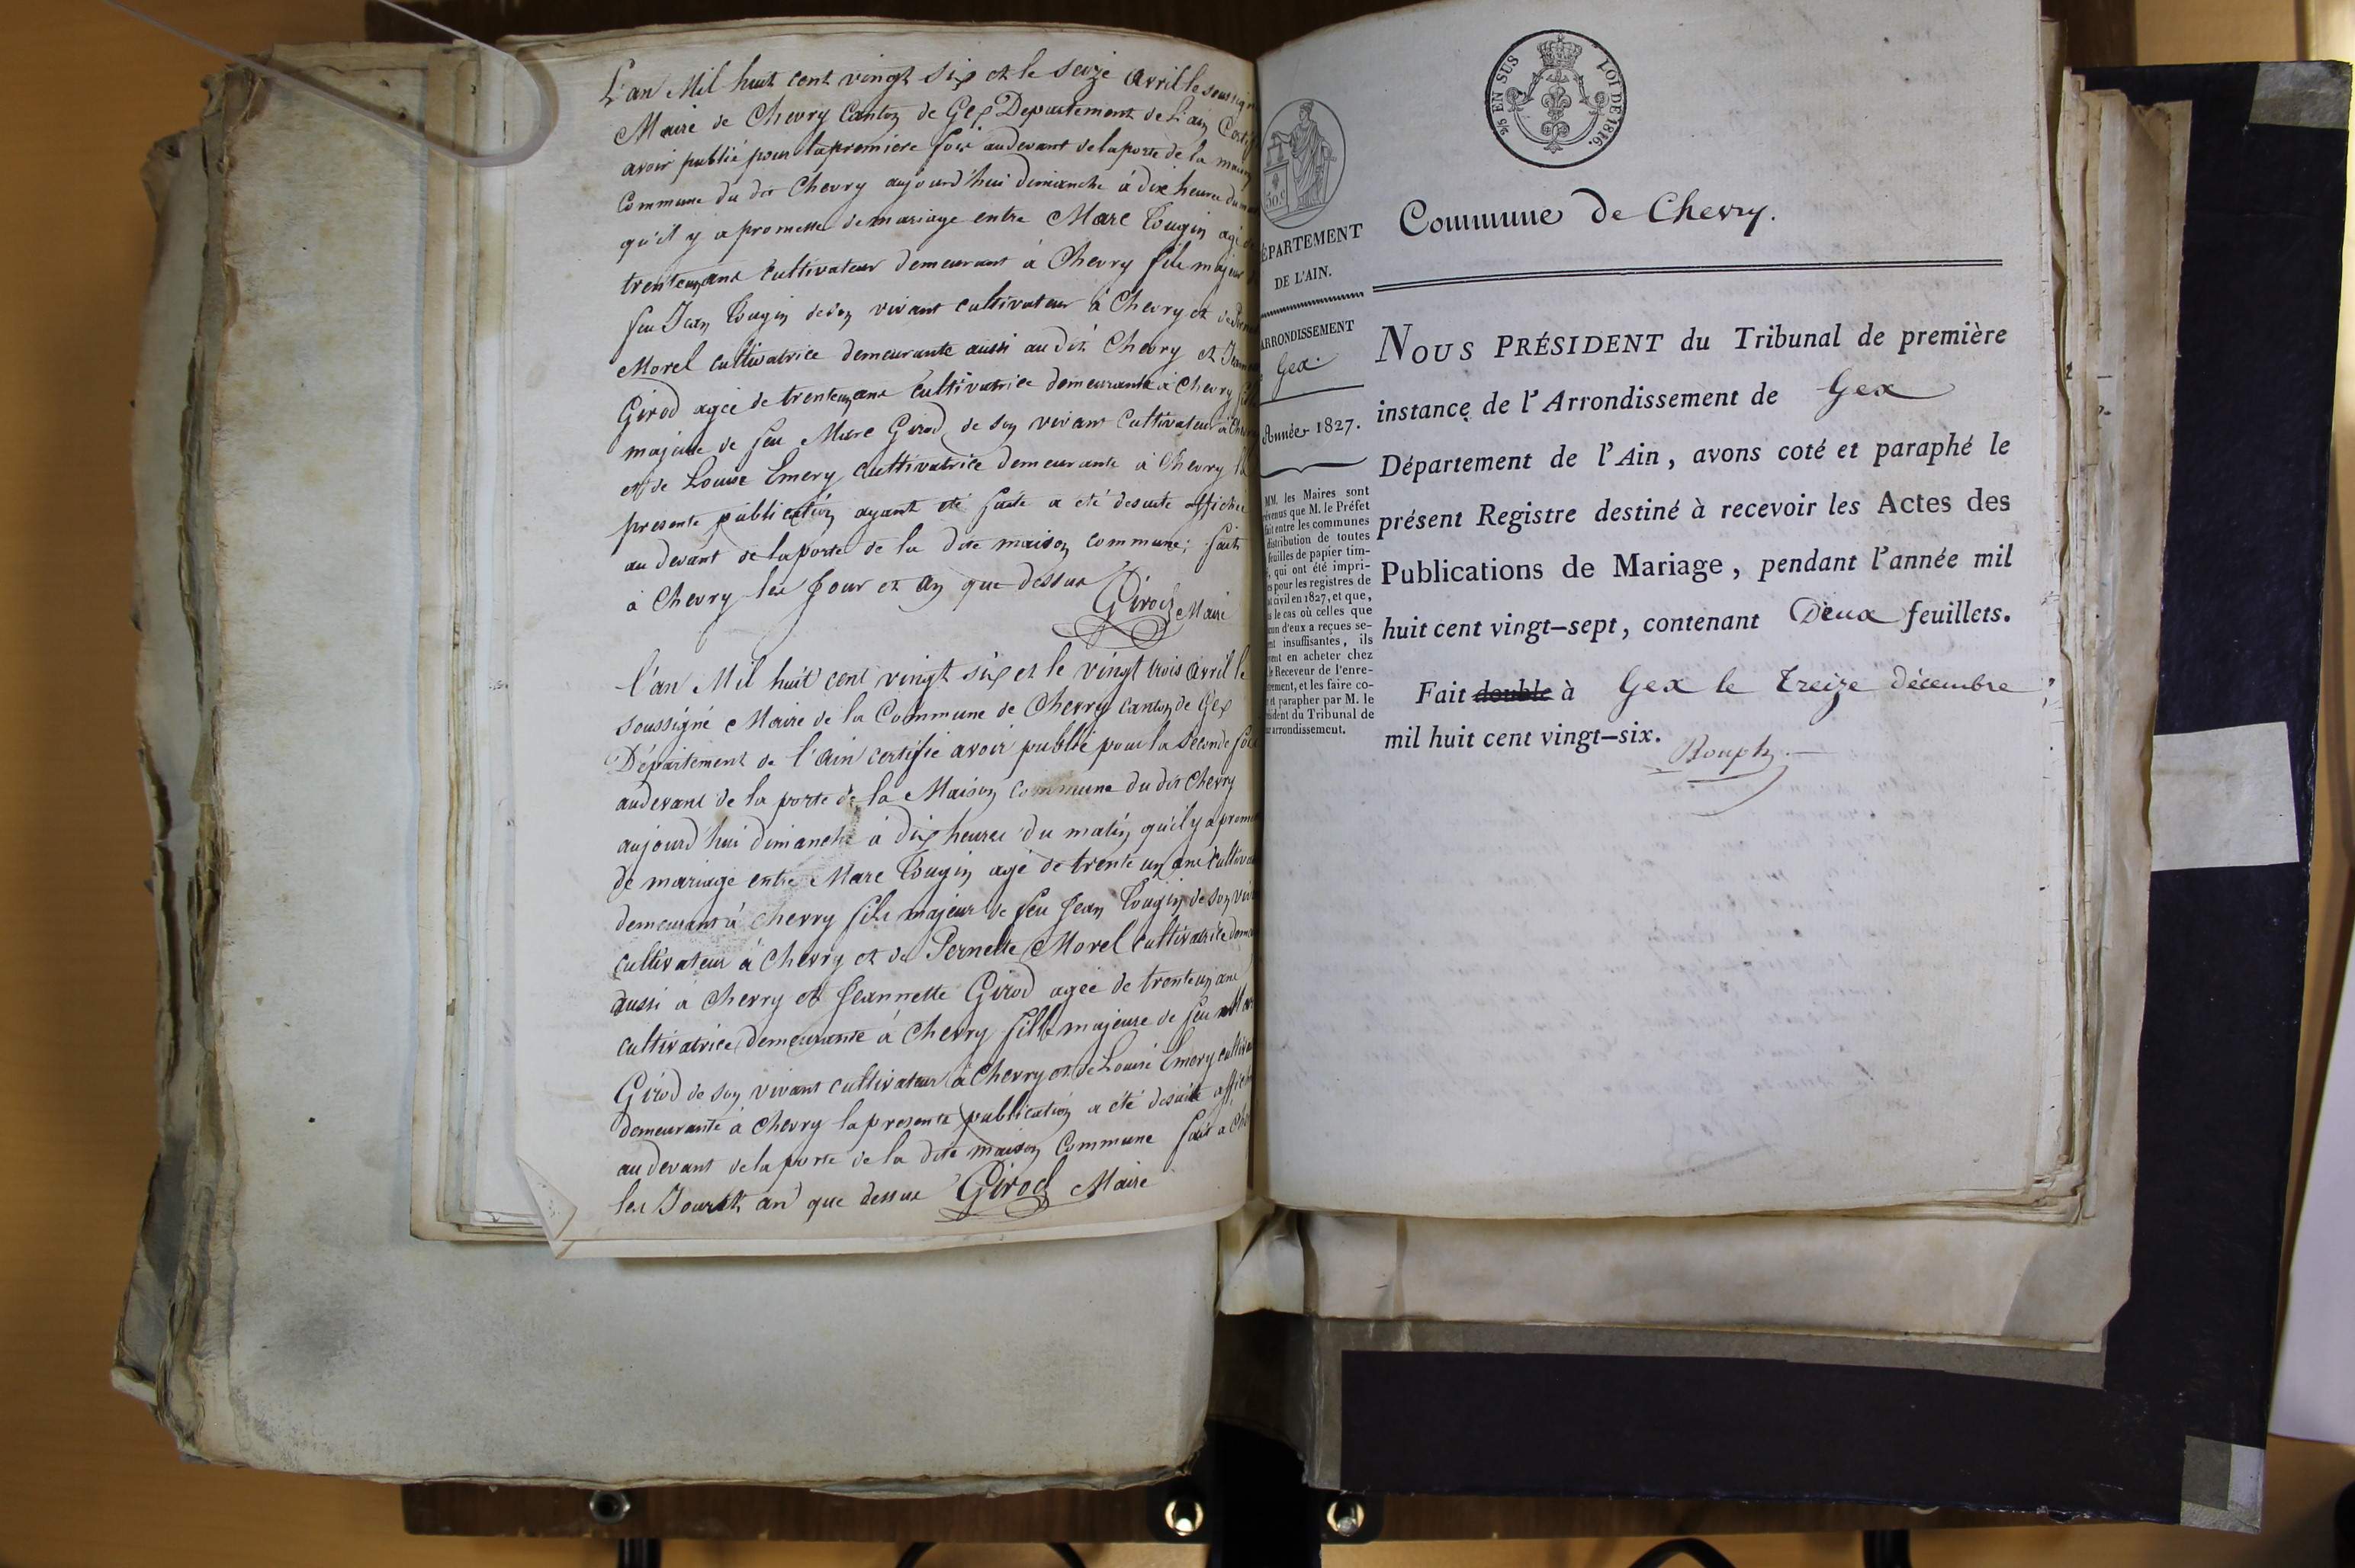 L'an Mil huit cent vingt six et le seize avril le soussigné
Maire de Chevry Canton de Gex Departement de L'ain Certif
avoir publié pour la premiere fois au devant de la porte de la maison
Commune du dit Chevry aujourd'hui dimanche à dix heures du
qu'il y a promesse de mariage entre Marc Tougin agé de
trente un ans Cultivateur demeurant à Chevry fils majeur
feu Jean Tougin de son vivant cultivateur à Chevry et de
Morel cultivatrice demeurante aussi au dit Chevry et
Girod agée de trente un ans Cultivatrice demeurante à Chevry
majeure de feu Marc Girod de son vivant Cultivateur à
et de Louise Emery Cultivatrice demeurante à Chevry la
presente publication ayant été faite a été desuite affichée
au devant de la porte de la dite maison commune; fait
à Chevry les Jour et an que dessus
Girod Maire
l'an Mil huit cent vingt six et le vingt trois avril le
soussigné Maire de la Commune de Chevry Canton de Gex
Département de l'ain certifie avoir publié pour la seconde fois
au devant de la porte de la Maison Commune du dit Chevry
aujourd'hui dimanche à dix heures du matin qu'il y a prom
de mariage entre Marc Tougin agé de trente un ans Cultiva
demeurant à Chevry fils majeur de feu Jean Tougin de son viv
cultivateur à Chevry et de Pernette Morel cultivatrice dem
aussi à Chevry et Jeannette Girod agée de trente un ans
cultivatrice demeurante à Chevry fille majeure de feu Marc
Girod de son vivant cultivateur à Chevry et de Louise Emery cultiva
demeurante à Chevry la presente publication a été desuite affich
au devant de la porte de la dite maison Commune fait à Che
les Jour et an que dessus Girod Maire
5/5 EN SUS LOI DE 1816.
50 c
Commune de Chevry.
ÉPARTEMENT
DE L'AIN.
ARRONDISSEMENT
Gex.
Année 1827.
MM. les Maires sont
révenus que M. le Préfet
fait entre les communes
distribution de toutes
feuilles de papier tim-
, qui ont été impri-
es pour les registres de
at civil en 1827, et que,
s le cas où celles que
cun d'eux a reçues se-
ent insuffisantes, ils
vent en acheter chez
le Receveur de l'enre-
trement, et les faire co-
et parapher par M. le
sident du Tribunal de
arrondissement.
NOUS PRÉSIDENT du Tribunal de première
instance de l'Arrondissement de Gex
Département de l'Ain, avons coté et paraphé le
présent Registre destiné à recevoir les Actes des
Publications de Mariage, pendant l'année mil
huit cent vingt-sept, contenant Deux feuillets.
Fait double à Gex le Treize décembre
mil huit cent vingt-six.